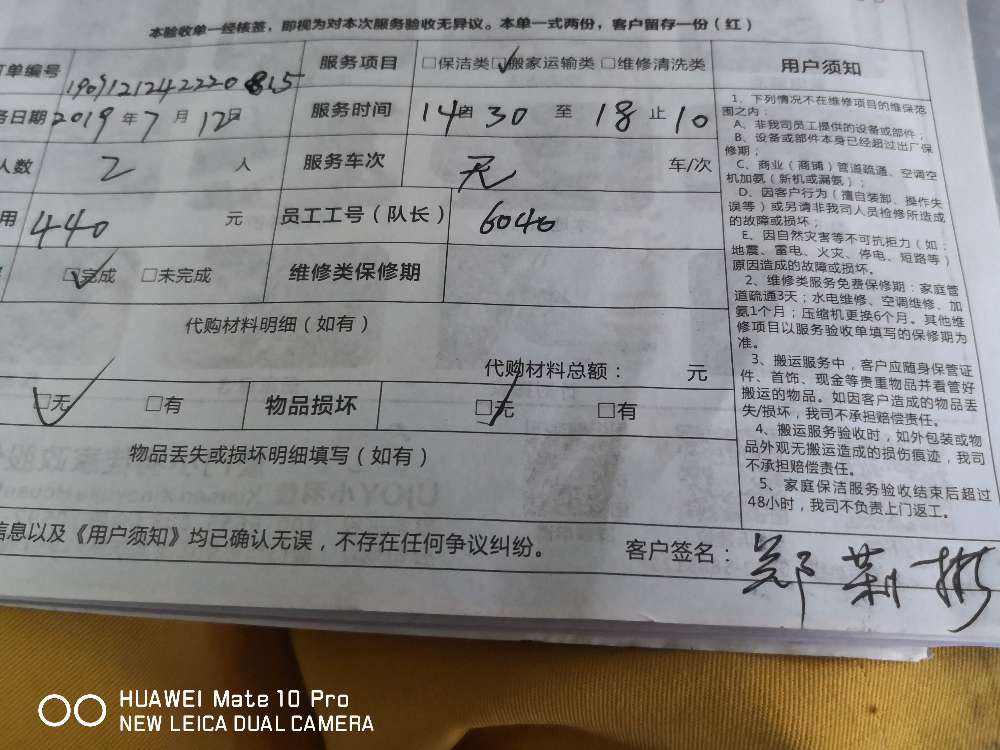 本验收单一经核签，即视为对本次服务验收无异议。本单一式两份，客户留存一份（红）
订单编号 服务项目 □保洁类 □搬家运输类 □维修清洗类 用户须知
务日期 2019 年 7 月 12日 服务时间 14时 30 至 18 止 10
人数 2 人 服务车次 无 车/次
用 440 元 员工工号（队长） 6040
□完成 □未完成 维修类保修期
代购材料明细（如有）
代购材料总额： 元
□无 □有 物品损坏 □无 □有
物品丢失或损坏明细填写（如有）
信息以及《用户须知》均已确认无误，不存在任何争议纠纷。 客户签名：
1、下列情况不在维修项目的维保范
围之内：
A、非我司员工提供的设备或部件；
B、设备或部件本身已经超过出厂保
修期；
C、商业（商铺）管道疏通、空调空
机加氨（新机或漏氨）；
D、因客户行为（擅自装卸、操作失
误等）或另请非我司人员检修所造成
的故障或损坏；
E、因自然灾害等不可抗拒力（如：
地震、雷电、火灾、停电、短路等）
原因造成的故障或损坏。
2、维修类服务免费保修期：家庭管
道疏通3天；水电维修、空调维修、加
氨1个月；压缩机更换6个月。其他维
修项目以服务验收单填写的保修期为
准。
3、搬运服务中，客户应随身保管证
件、首饰、现金等贵重物品并看管好
搬运的物品。如因客户造成的物品丢
失/损坏，我司不承担赔偿责任。
4、搬运服务验收时，如外包装或物
品外观无搬运造成的损伤痕迹，我司
不承担赔偿责任。
5、家庭保洁服务验收结束后超过
48小时，我司不负责上门返工。
HUAWEI Mate 10 Pro
NEW LEICA DUAL CAMERA